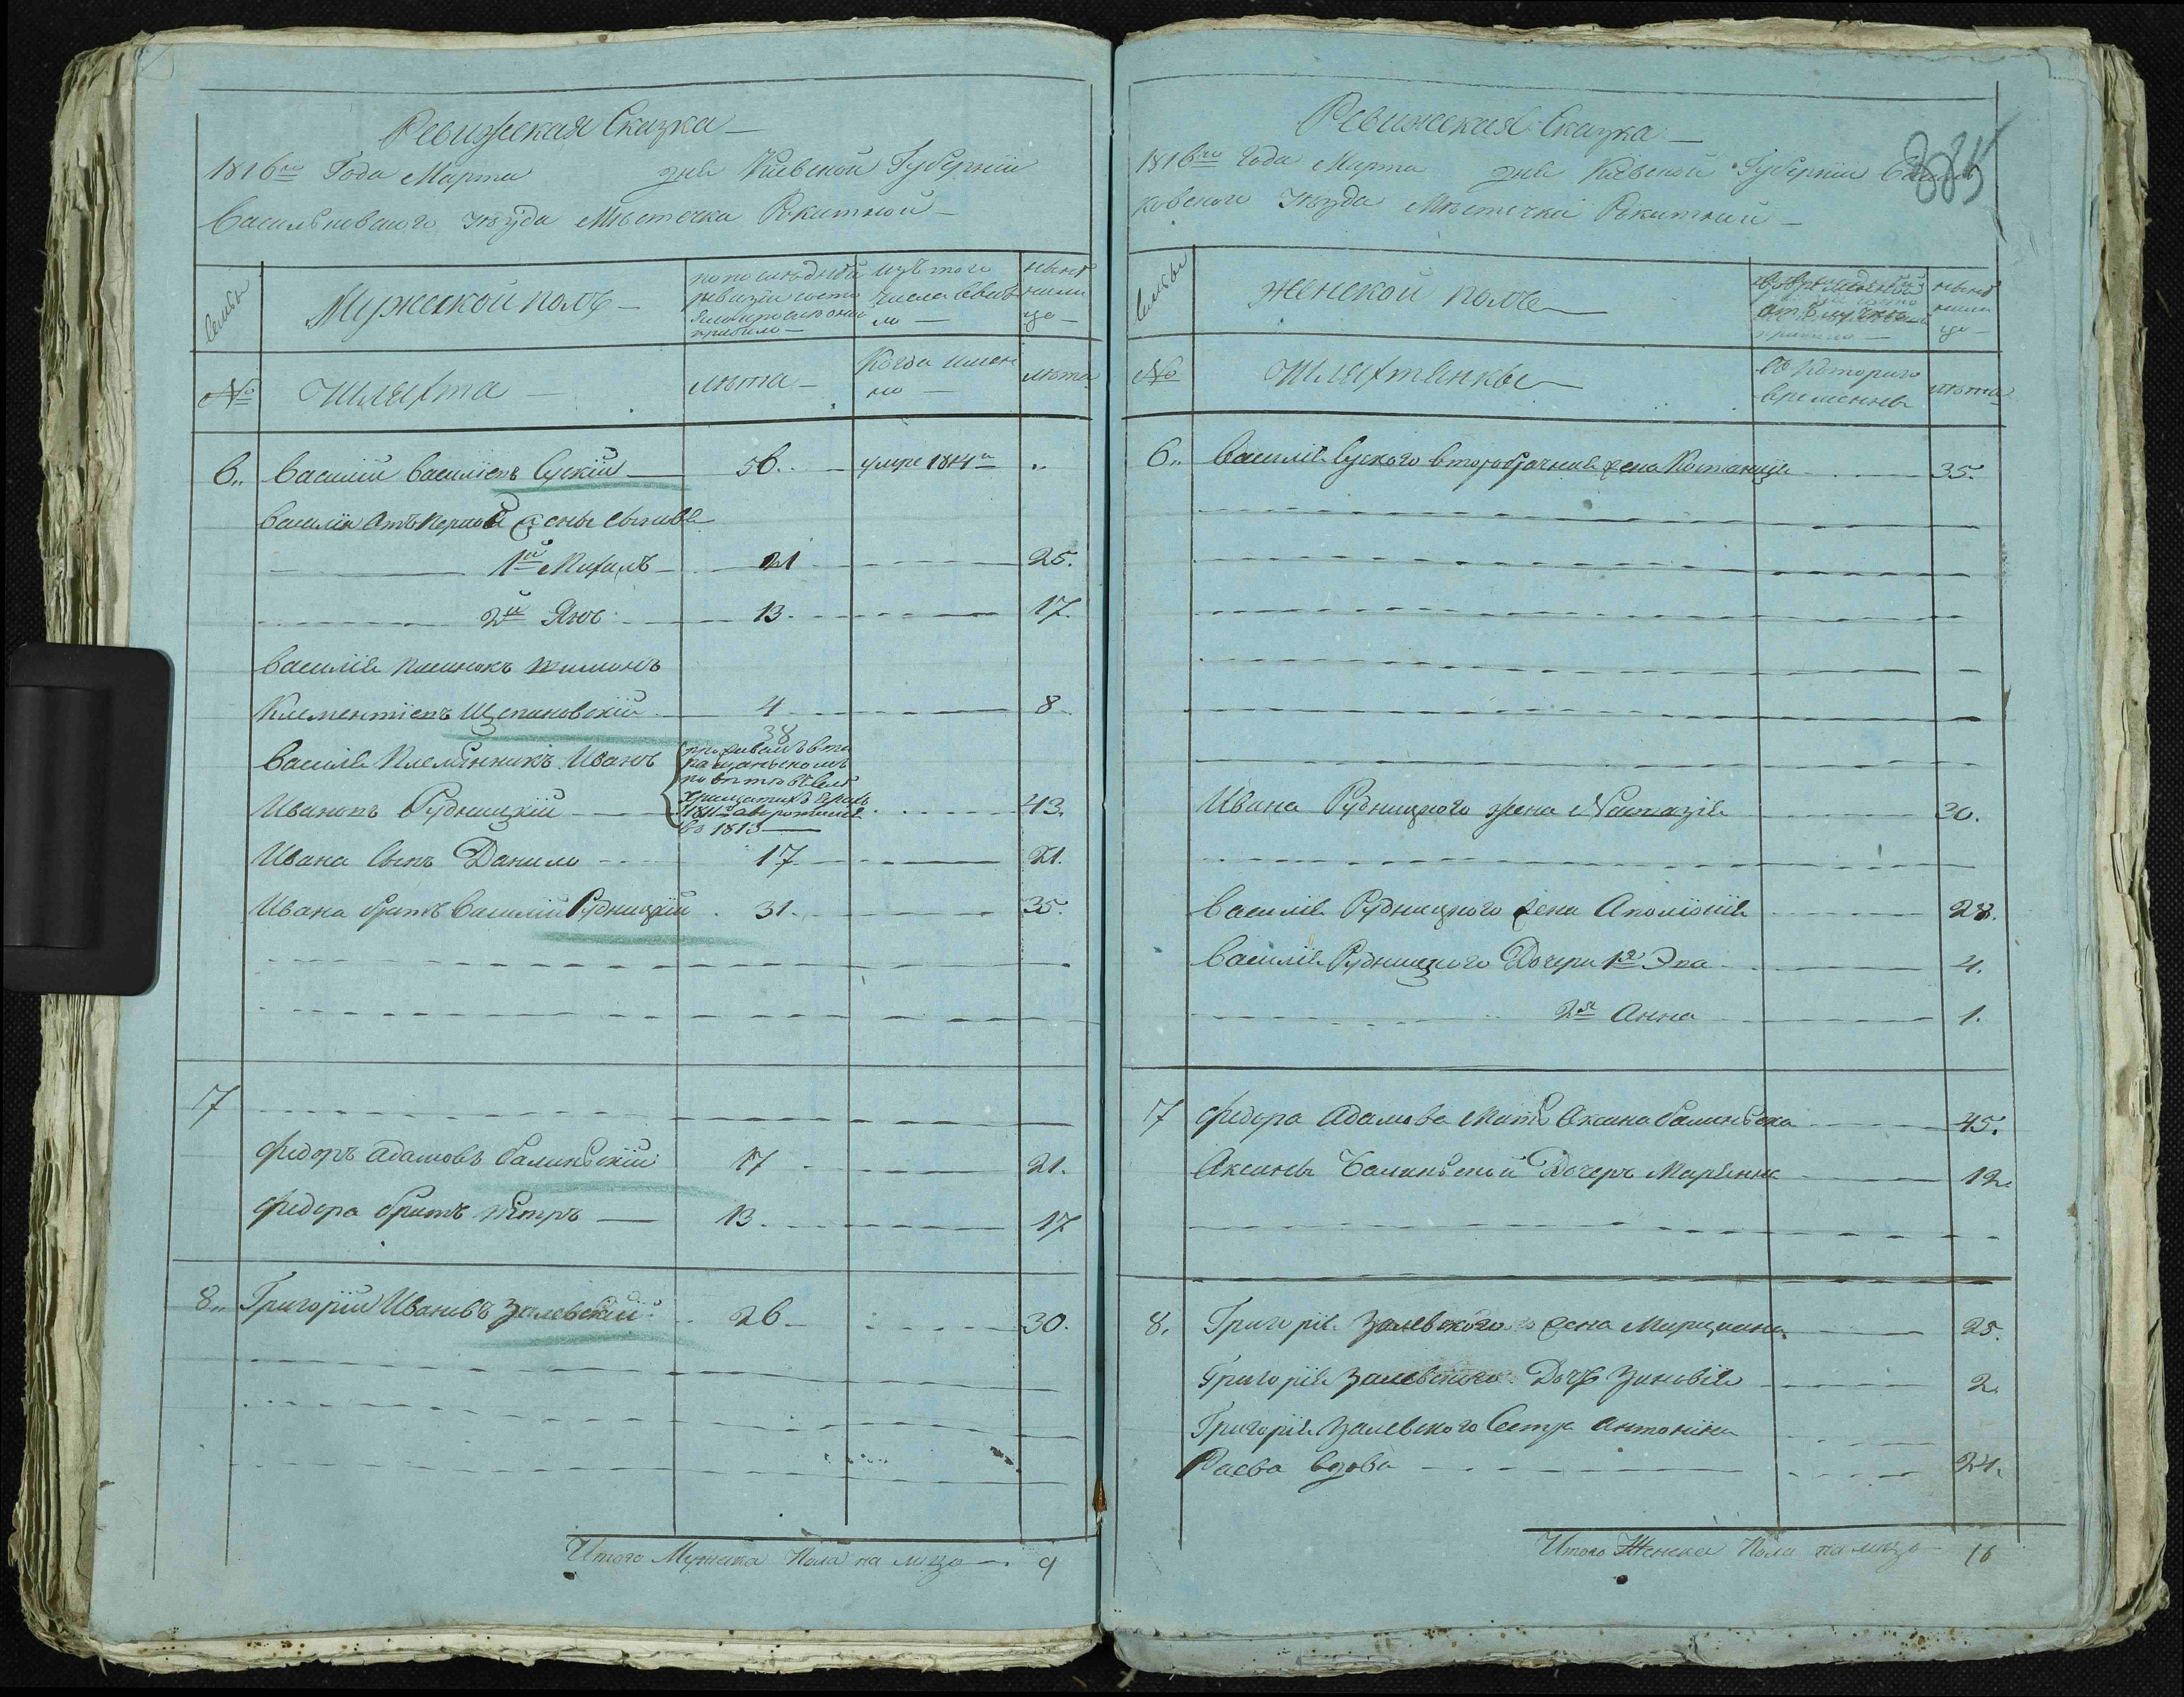 Ревижская Сказка
1816го Года Марта дня Киевской Губернiи
Васильковского уезда Мѣстечка Рокитной
Семьи
Мужеской полъ
по последней
ревизiи состо
яло и после оной
прибыло
изъ того
числа выбы
ло
нынѣ
нали
цо
№
Шляхта
лѣта
Когда имен
но
лѣта
6. Василiй Василiевъ Сускiй 56. умре 1814го
Василiя отъ первой жены сыновя
1й Михалъ 21 25.
2й Янъ 13. 17.
Василiя пасинокъ Шимонъ
Климентiевъ Щепановскiй 4 8
38
Василiя Племянникъ Иванъ
проживалъ въ та
ращанскомъ
повѣтѣ въ селѣ
1811
въ 1813
Ивановъ Рудницкiй 43.
Ивана Сынъ Данило 17 21.
Ивана братъ Василiй Рудницкiй 31. 35.
17
Федоръ Адамовъ Балинскiй 17 21.
Федора братъ Петръ 13. 17
8. Григорiй Ивановъ Залевскiй 26 30.
Итого Мужеска Пола на лицо 9
Ревижская Сказка
385
1816го Года Марта дня Киевской Губернiи Василь
ковского уезда Мѣстечка Рокитной
Семьи
Женской полъ
во временной
отлучке
нынѣ
нали
цо
№
Шляхтянки
съ Которого
времени
лѣта
6. Василiя Суского второбрачная жена Костанцiя 35.
Ивана Рудницкого жена Настазiя 30.
Василiя Рудницкого жена Аполонiя 28.
Василiя Рудницкого Дочери 1я Эва 4.
2я Анна 1.
17 Федора Адамова Мать Аксина Балинска 45.
Аксины Балинской Дочерь Марiянна 12.
8. Григорiя Залевского жена Марцияна 25.
Григорiя Залевского Дочь Зиновiя 2.
Григорiя Залевского Сестра Антонiна
Раева вдова 24.
Итого Женска Пола на лицо 10